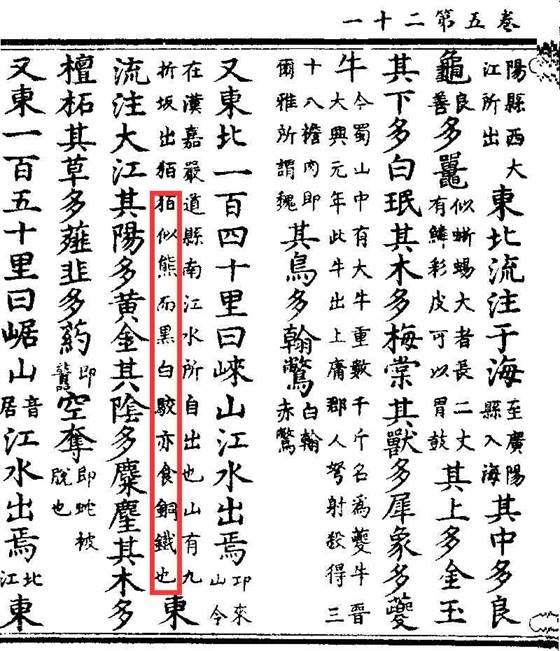 卷五第二十一
陽縣西大江所出東北流注于海至廣陽縣入海其中多良
龜良善多鼉似蜥蜴大者長二丈有鱗彩皮可以冒鼓其上多金玉
其下多白珉其木多梅棠其獸多犀象多夔
牛今蜀山中有大牛重數千斤名為夔牛晉大興元年此牛出上庸郡人弩射殺得三
十八擔肉即爾雅所謂魏其鳥多翰鷩白翰赤鷩
又東北一百四十里曰崍山江水出焉卭來山今
在漢嘉嚴道縣南江水所自出也山有九折坂出狛狛似熊而黑白駮亦食銅鐵也東
流注大江其陽多黃金其陰多麋麈其木多
檀柘其草多薤韭多葯即虈空奪即蛇被脫也
又東一百五十里曰崌山音居江水出焉北江東